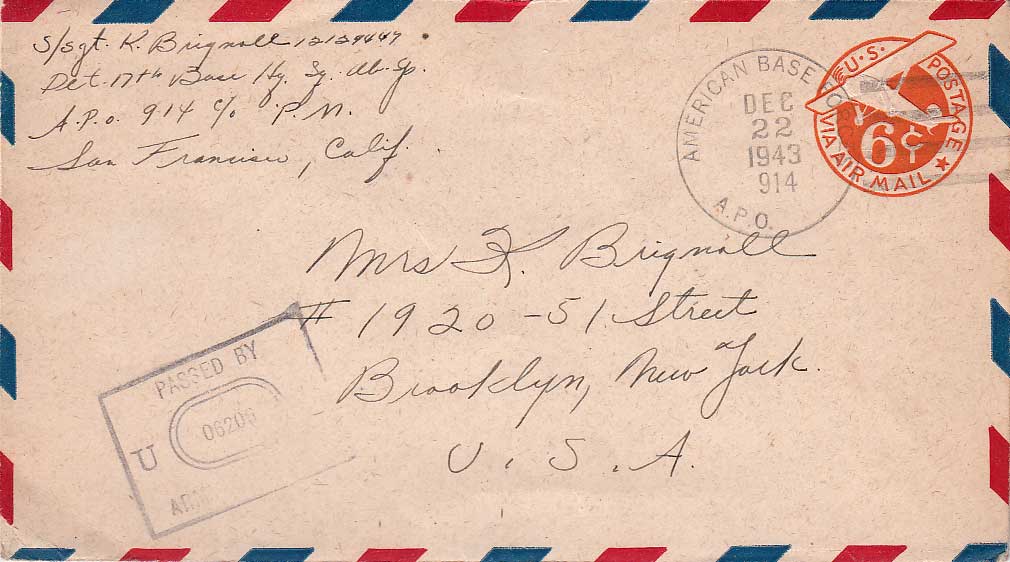 S/Sgt. K. Brignall 12129447
Det. 17th Base Hq. Sq. Ab. Gp.
A.P.O. 914 c/o P.M.
San Francisco, Calif.
AMERICAN BASE
DEC
22
1943
914
A.P.O.
U.S. POSTAGE
6¢
VIA AIR MAIL
Mrs K. Brignall
# 1920 - 51 Street
Brooklyn, New York.
U. S. A.
PASSED BY
U